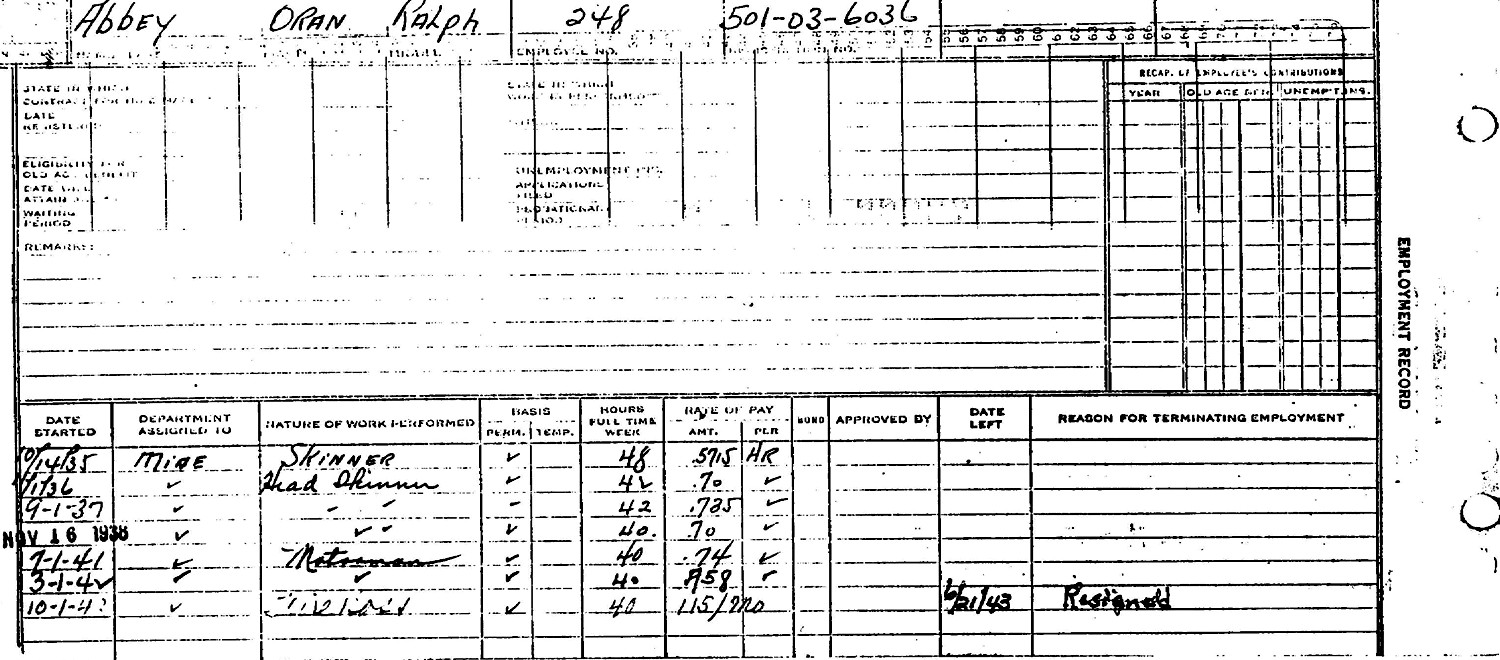 Abbey ORAN RALPH 248 501-03-6036
EMPLOYEE NO.
56 57 58 59 60 61 62 63 64 65 66 67 68
RECAP. OF EMPLOYEE'S CONTRIBUTIONS
YEAR OLD AGE BEN. UNEMPT. INS.
STATE IN WHICH
DATE
ELIGIBILITY FOR
OLD AGE BENEFIT
UNEMPLOYMENT INS.
APPLICATIONS
FILED
DATE WILL
ATTAIN
WAITING
PERIOD
PROBATIONARY
PERIOD
REMARKS
EMPLOYMENT RECORD
DATE STARTED DEPARTMENT ASSIGNED TO NATURE OF WORK PERFORMED BASIS PERM. TEMP. HOURS FULL TIME WEEK RATE OF PAY AMT. PER BOND APPROVED BY DATE LEFT REASON FOR TERMINATING EMPLOYMENT
10/14/35 MINE SKINNER ✓ 48 .5715 HR
1/1/36 ✓ Head Skinner ✓ 42 .70 ✓
9-1-37 ✓ " " 42 .735 ✓
NOV 16 1938 ✓ ✓ ✓ ✓ 40. .70 ✓
7-1-41 ✓ Motorman ✓ 40 .74 ✓
3-1-42 ✓ ✓ ✓ 40 .858 ✓
10-1-4 ✓ ✓ 40 115/mo 6/21/43 Resigned